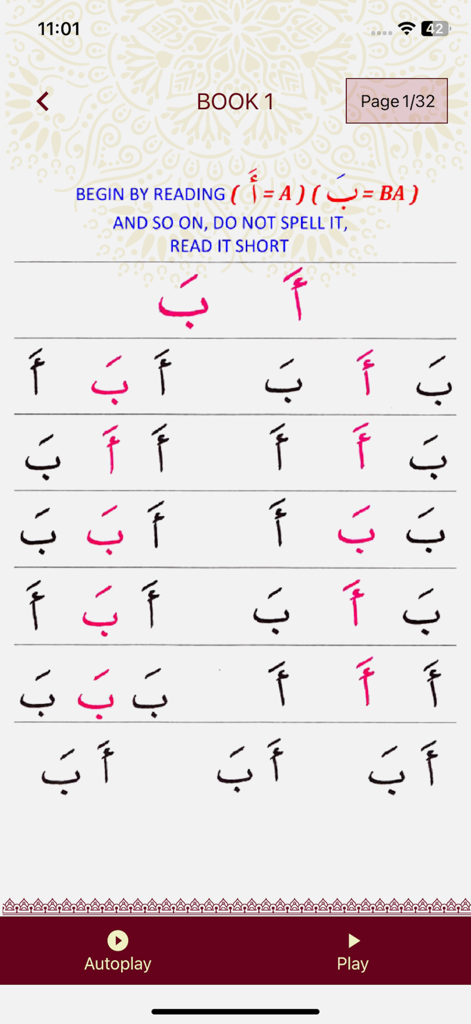 11:01 42
BOOK 1
Page 1/32
BEGIN BY READING ( أَ = A ) ( بَ = BA )
AND SO ON, DO NOT SPELL IT,
READ IT SHORT
أَ بَ
بَ أَ بَ أَ بَ أَ
بَ أَ أَ أَ أَ بَ
بَ بَ أَ أَ بَ بَ
بَ أَ بَ أَ بَ أَ
أَ أَ أَ بَ بَ بَ
أَ بَ أَ بَ أَ بَ
Autoplay Play